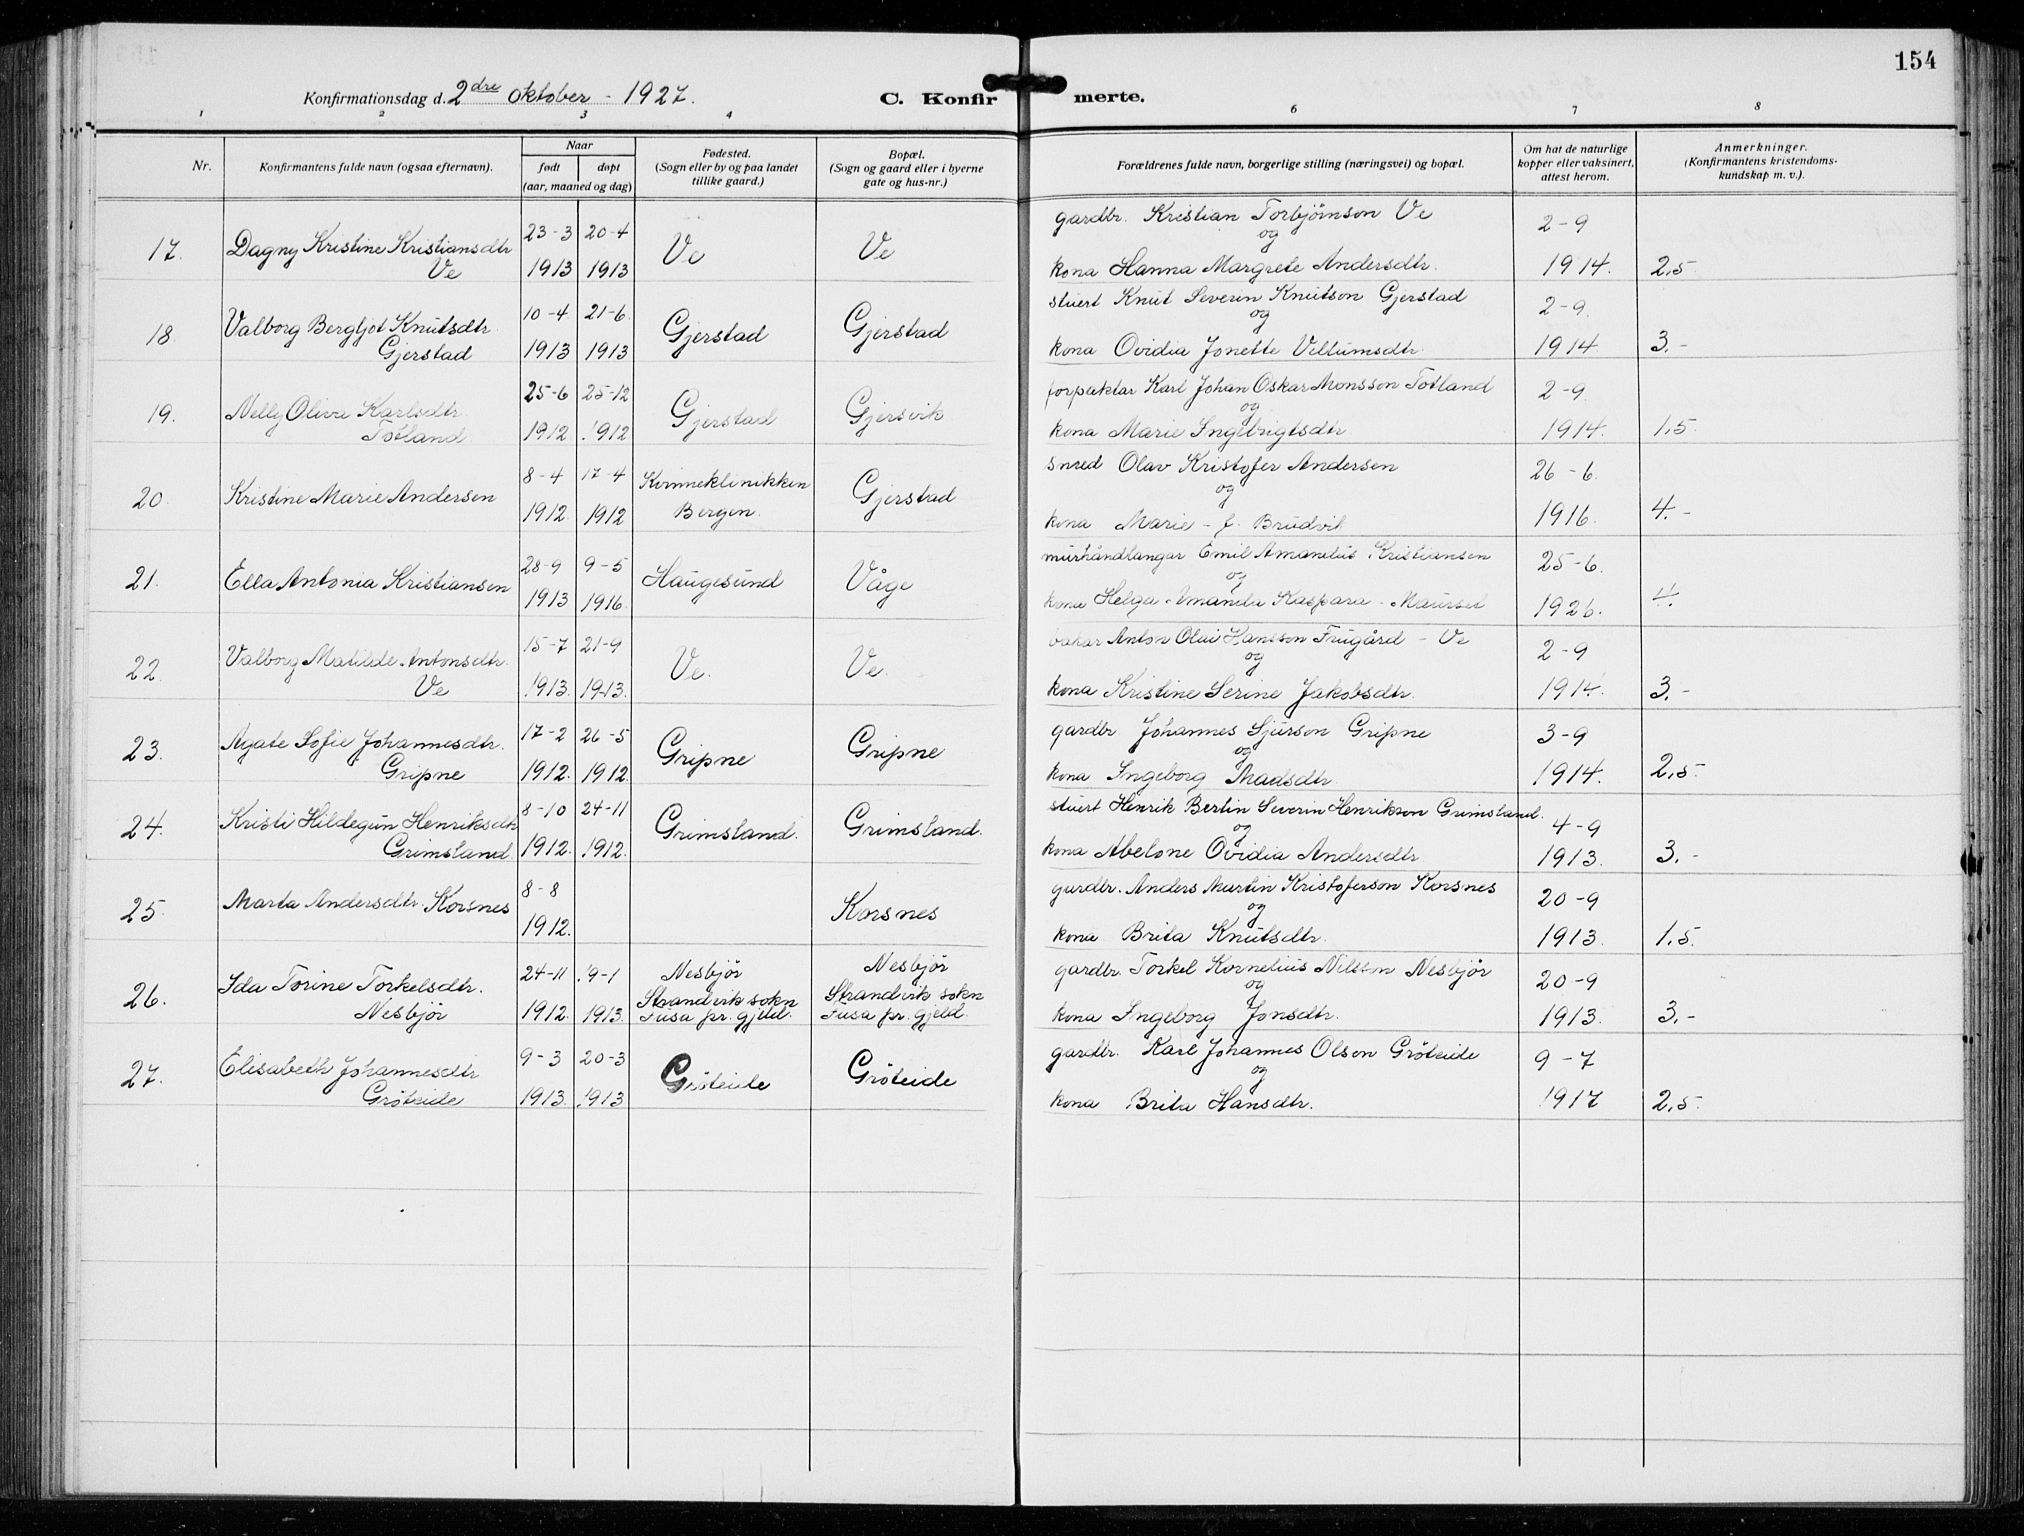 154
Konfirmationsdag d. 2dre oktober - 1927.
C. Konfirmerte.
1 2 3 4 5 6 7 8
Nr.
Konfirmantens fulde navn (ogsaa efternavn).
Naar
født døpt
(aar, maaned og dag)
Fødested.
(Sogn eller by og paa landet
tillike gaard.)
Bopæl.
(Sogn og gaard eller i byerne
gate og hus-nr.)
Forældrenes fulde navn, borgerlige stilling (næringsvei) og bopæl.
Om hat de naturlige
kopper eller vaksinert,
attest herom.
Anmerkninger.
(Konfirmantens kristendoms-
kundskap m. v.).
17. Dagny Kristine Kristiansdtr
Ve
23-3 20-4
1913 1913
Ve
Ve
gardbr. Kristian Torbjørnson Ve
og
kona Hanna Margrete Andersdtr.
2-9
1914.
2,5
18 Valborg Bergljot Knutsdtr.
Gjerstad
10-4 21-6
1913 1913
Gjerstad
Gjerstad
stuert Knut Severin Knutson Gjerstad
og
kona Ovidia Jonette Villumsdtr.
2-9.
1914
3.-
19. Nelly Olive Karlsdtr.
Totland
25-6 25-12
1912 1912
Gjerstad
Gjersvik
forpaktar Karl Johan Oskar Monsson Totland
og
kona Marie Ingebrigtsdtr
2-9.
1914.
1,5.
20. Kristine Marie Andersen
8-4 17-4
1912 1912
Kvinneklinikken
Bergen.
Gjerstad
snred Olav Kristofer Andersen
og
kona Marie - f. Brudvik
26-6
1916.
4.-
21. Ella Antonia Kristiansen
28-9 9-5
1913 1916
Haugesund
Våge
murhåndlangar Emil Amandus Kristiansen
og
kona Helga Amanda Kaspara - Maurset
25-6.
1926.
4.
22. Valborg Matilde Antonsdtr.
Ve
15-7 21-9
1913. 1913.
Ve.
Ve.
bakar Anton Olai Hansson Frugård - Ve
og
kona Kristine Serine Jakobsdtr.
2-9
1914.
3.-
23. Agate Sofie Johannesdtr.
Gripne
17-2 26-5
1912. 1912.
Gripne
Gripne
gardbr. Johannes Sjurson Gripne
og
kona Ingeborg Madsdtr.
3-9
1914.
2,5.
24. Kristi Hildegun Henriksdtr
Grimsland
8-10 24-11
1912. 1912.
Grimsland.
Grimsland.
stuert Henrik Bertin Severin Henrikson Grimsland.
og
kona Abelone Ovidia Andersdtr.
4-9
1913.
3.-
25. Marta Andersdtr. Korsnes
8-8
1912.
Korsnes
gardbr. Anders Martin Kristoferson Korsnes
og
kona Brita Knutsdtr.
20-9
1913.
1,5.
26. Ida Torine Torkelsdtr.
Nesbjør
24-11 19-1
1912. 1913.
Nesbjør
Strandvik sokn
Fusa pr. gjeld.
Nesbjør
Strandvik sokn
Fusa pr. gjeld.
gardbr. Torkel Kornelius Nilsson Nesbjør
og
kona Ingeborg Jonsdtr.
20-9
1913.
3.-
27. Elisabeth Johannesdtr
Grøteide
9-3 20-3
1913. 1913
Grøteide
Grøteide
gardbr. Karl Johannes Olson Grøteide
og
kona Brita Hansdtr.
9-7
1917
2,5.